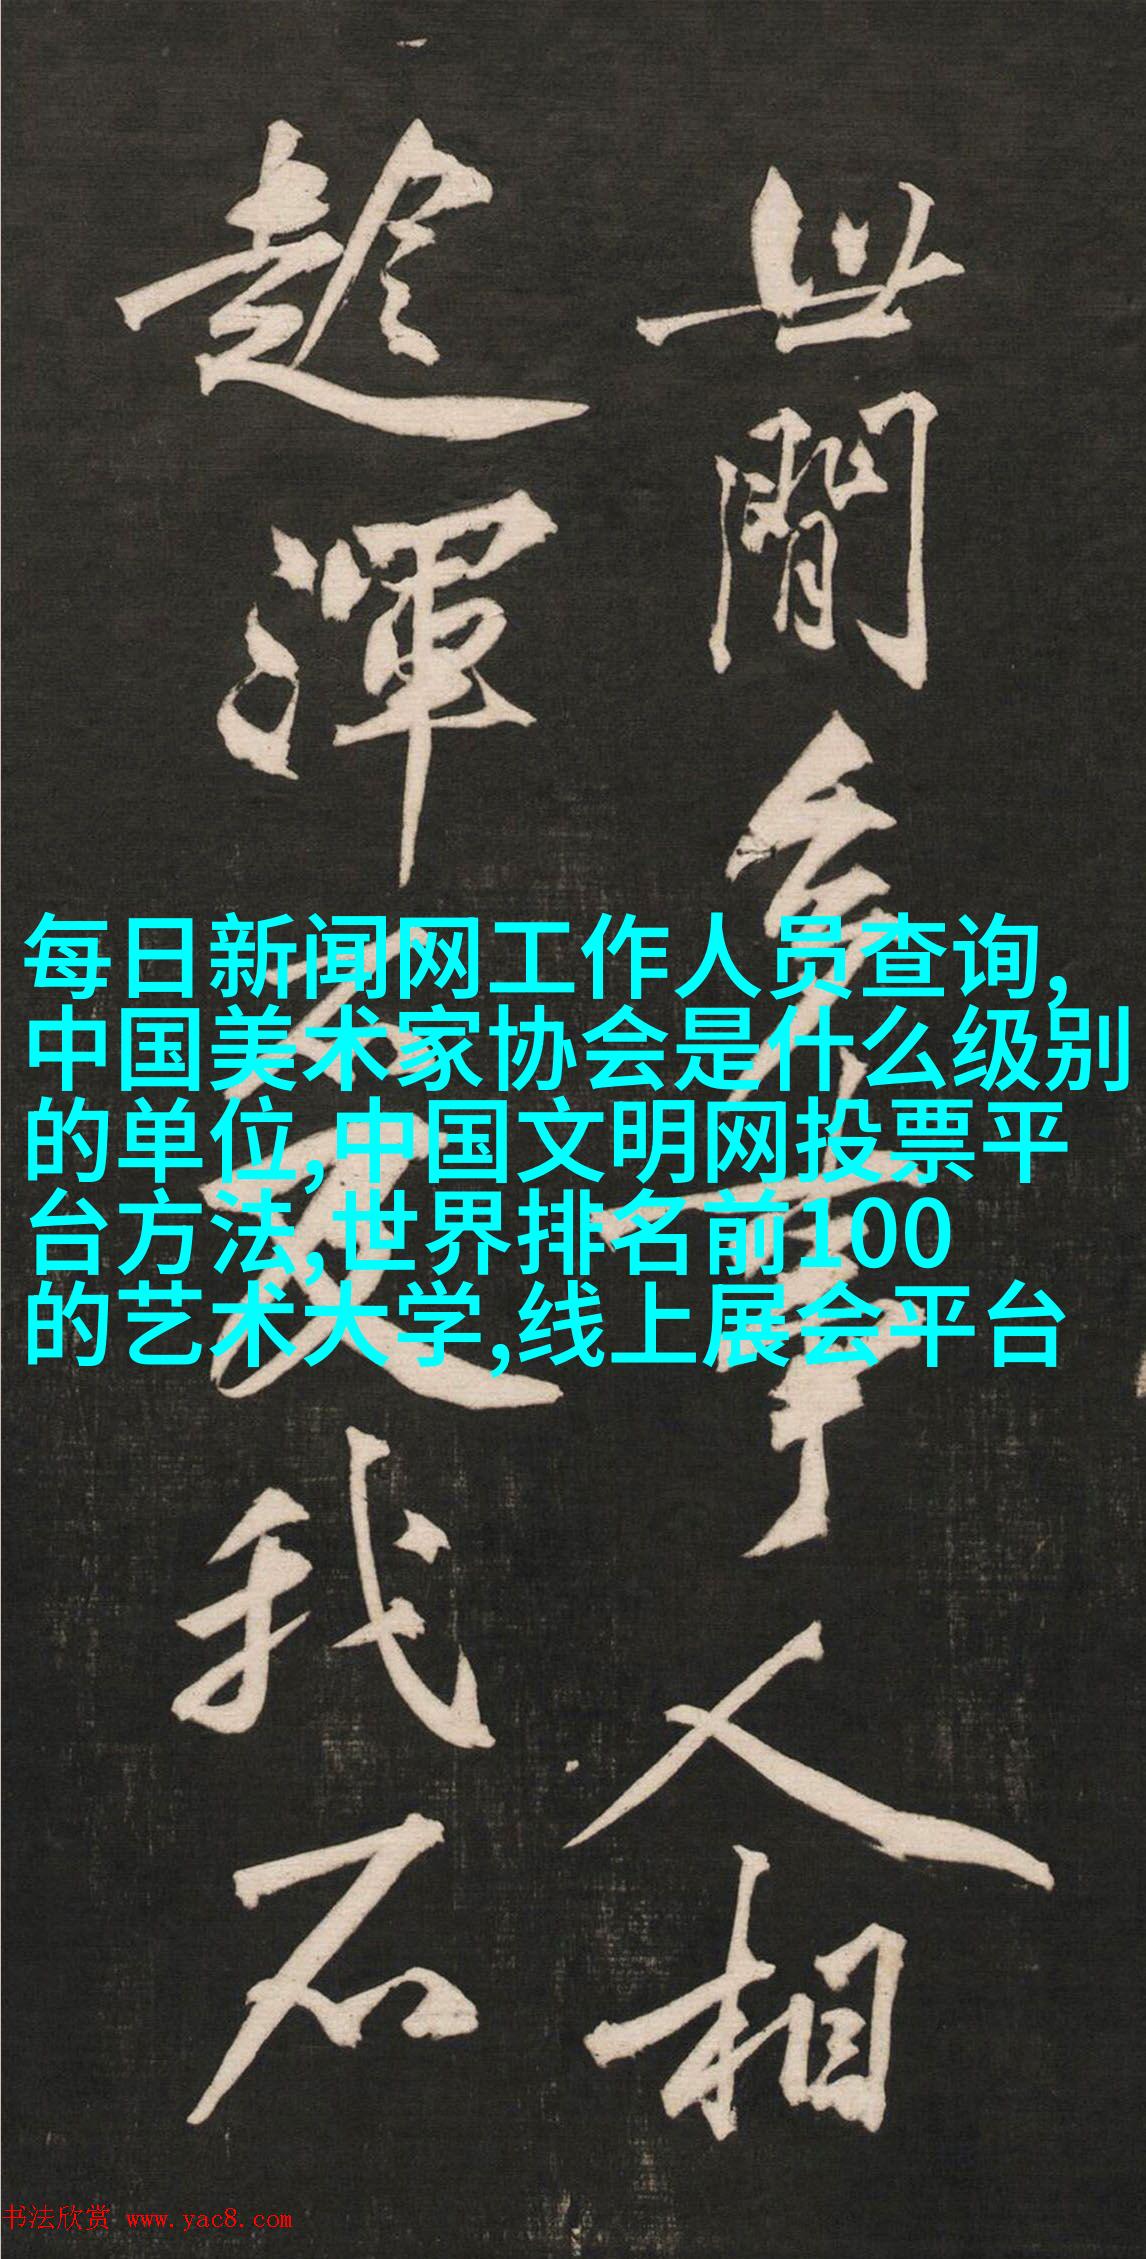 世間多事人相
趁渾
我石
每日新闻网工作人员查询,
中国美术家协会是什么级别
的单位,中国文明网投票平
台方法,世界排名前100
的艺术大学,线上展会平台
书法欣赏 www.yac8.com